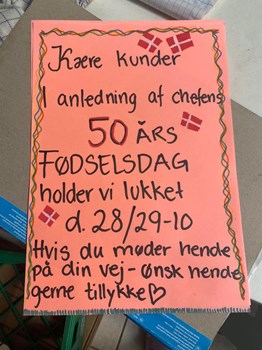 Kære kunder
I anledning af chefens
50 ÅRS
FØDSELSDAG
holder vi lukket
d. 28/29-10
Hvis du møder hende
på din vej - ønsk hende
gerne tillykke♡